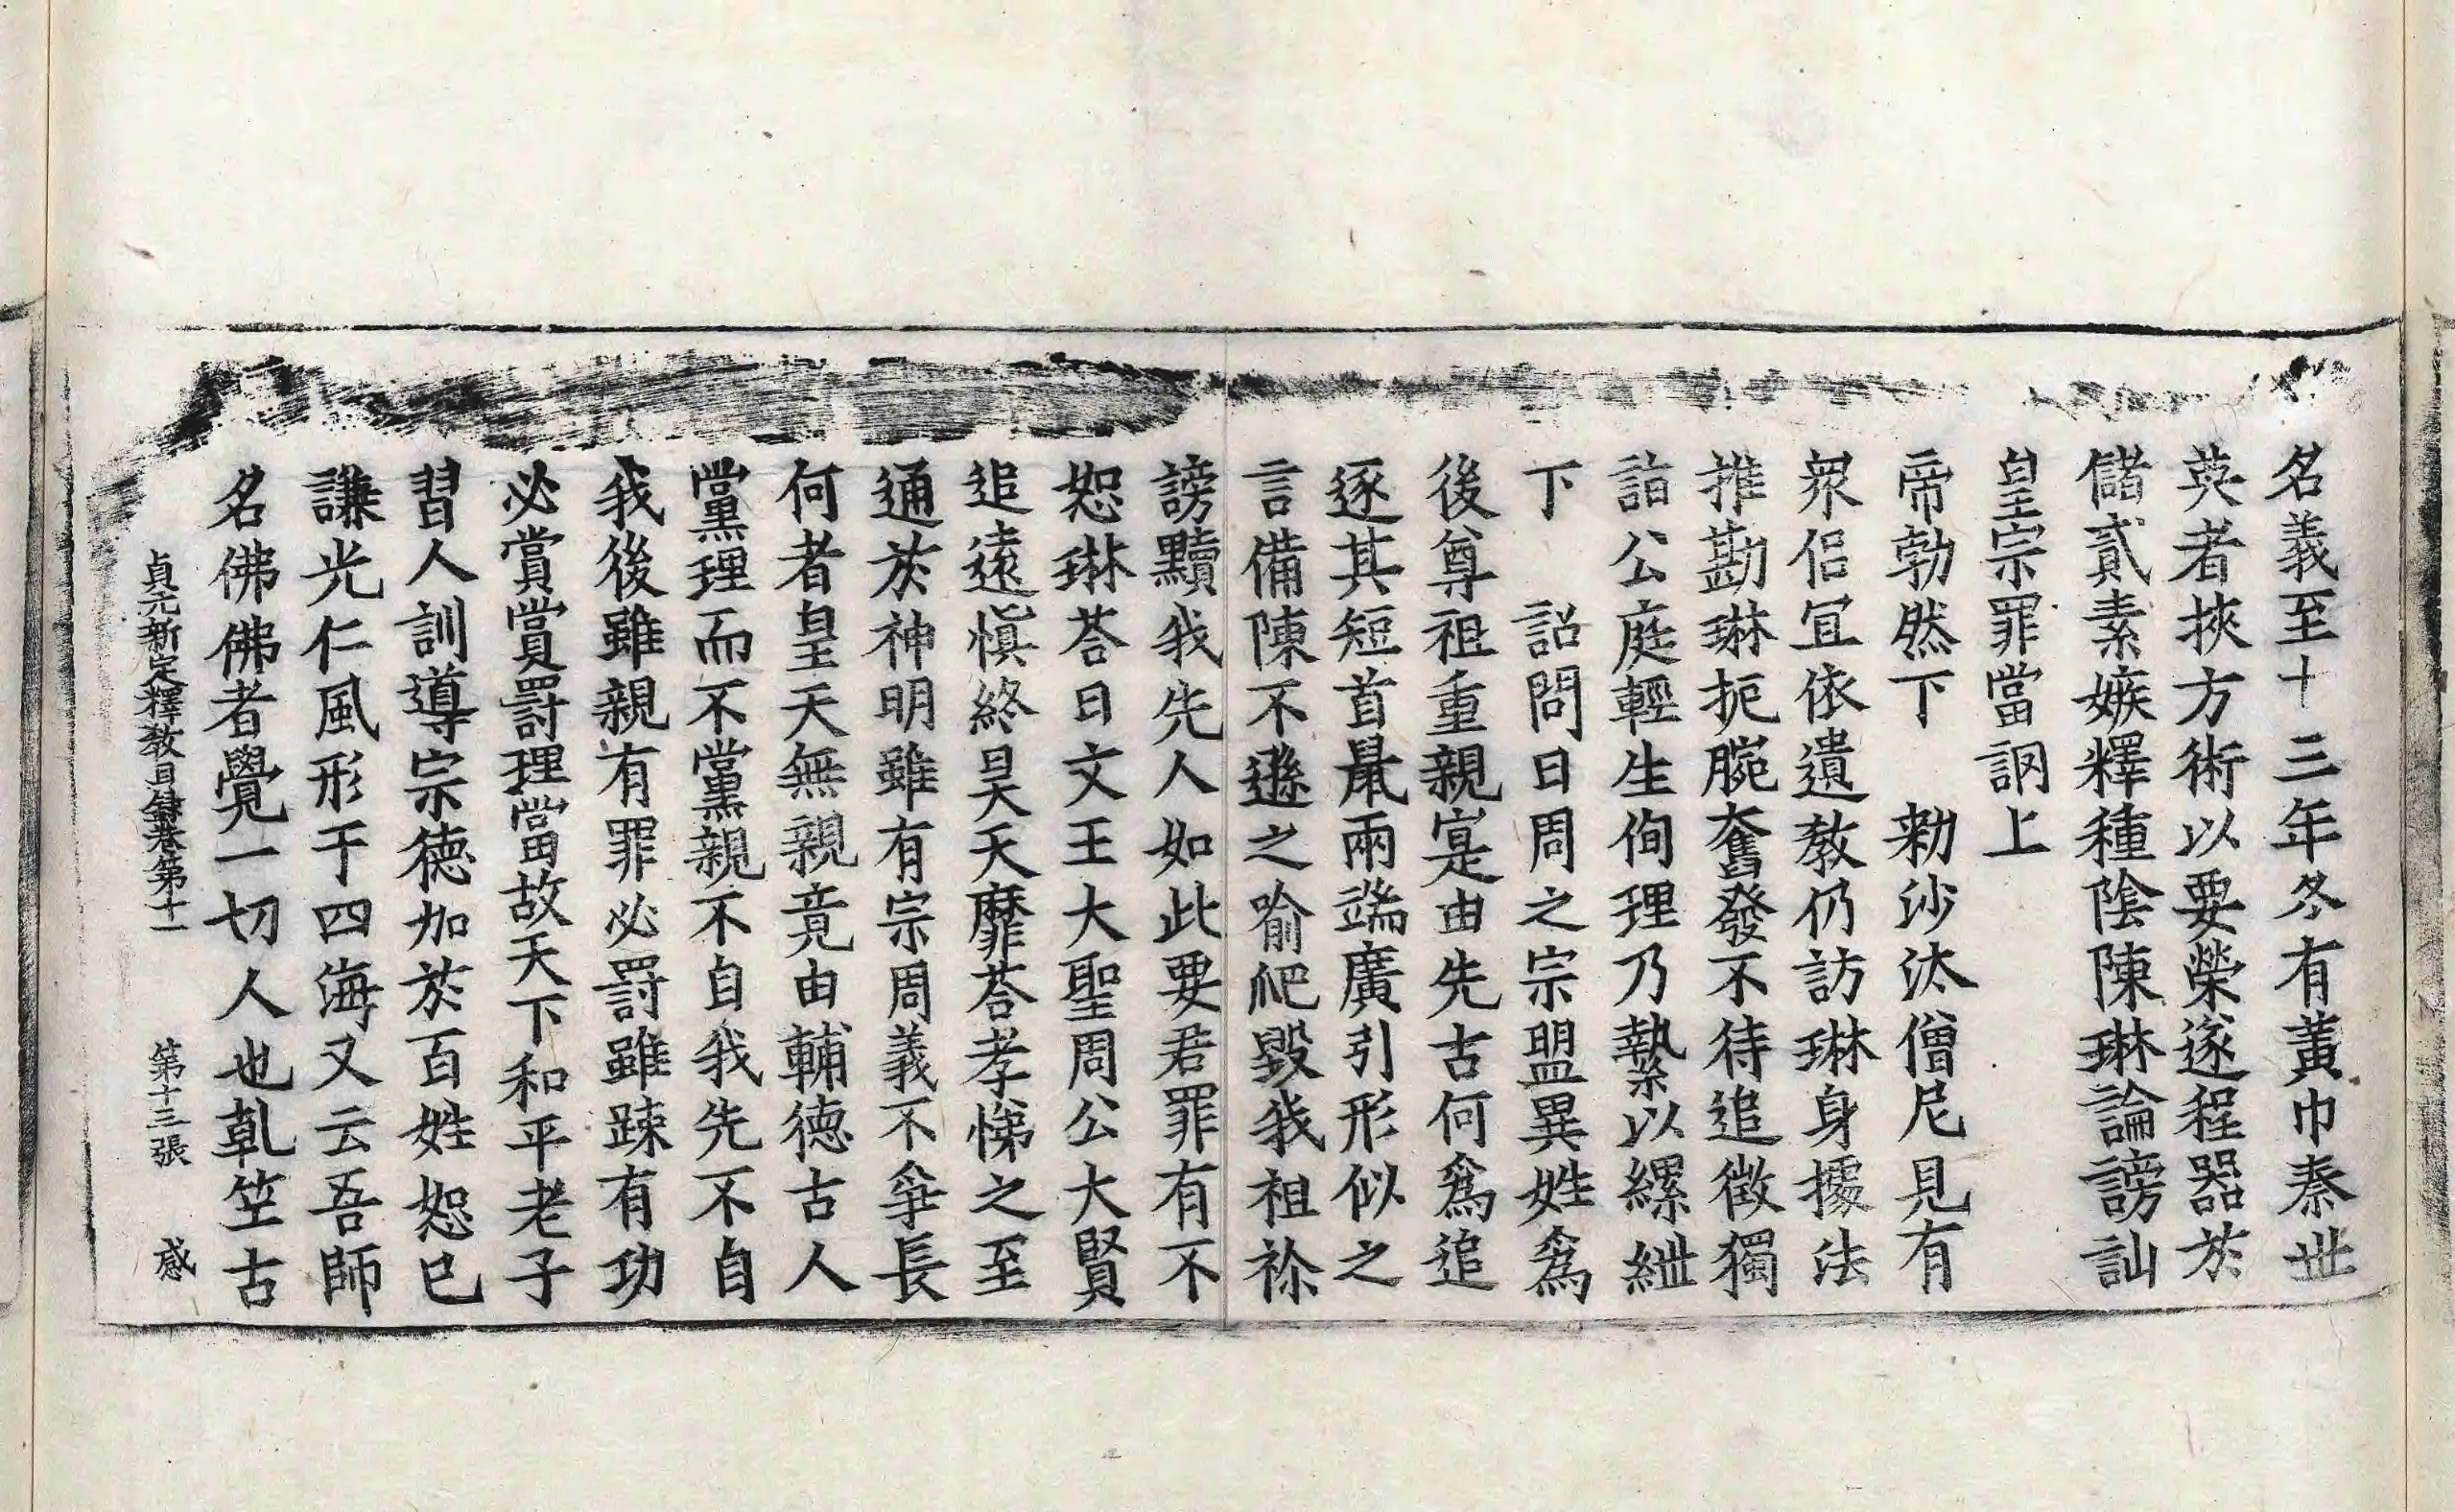 名義至十三年冬有黃巾秦世
英者挾方術以要榮遂程器於
儲貳素嫉釋種陰陳琳論謗訕
皇宗罪當詷上
帝勃然下　勑沙汰僧尼見有
眾侶宜依遺教仍訪琳身據法
推勘琳扼腕奮發不待追徵獨
詣公庭輕生侚理乃縶以縲紲
下　詔問曰周之宗盟異姓爲
後尊祖重親寔由先古何爲追
逐其短首鼠兩端廣引形似之
言備陳不遜之喻爬毀我祖祢
謗黷我先人如此要君罪有不
恕琳荅曰文王大聖周公大賢
追遠愼終昊天靡荅孝悌之至
通於神明雖有宗周義不爭長
何者皇天無親竟由輔德古人
黨理而不黨親不自我先不自
我後雖親有罪必罰雖踈有功
必賞賞罰理當故天下和平老子
習人訓導宗德加於百姓恕已
謙光仁風形于四海又云吾師
名佛佛者覺一切人也乹笁古
貞元新定釋教目錄卷第十一　第十三張　感